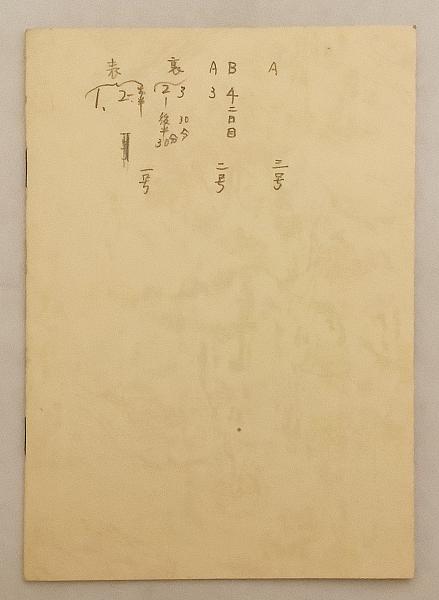 表 裏 A B A
1. 2 前半 2 3 3 4
後半 30分 30分 二日目
一号 二号 三号